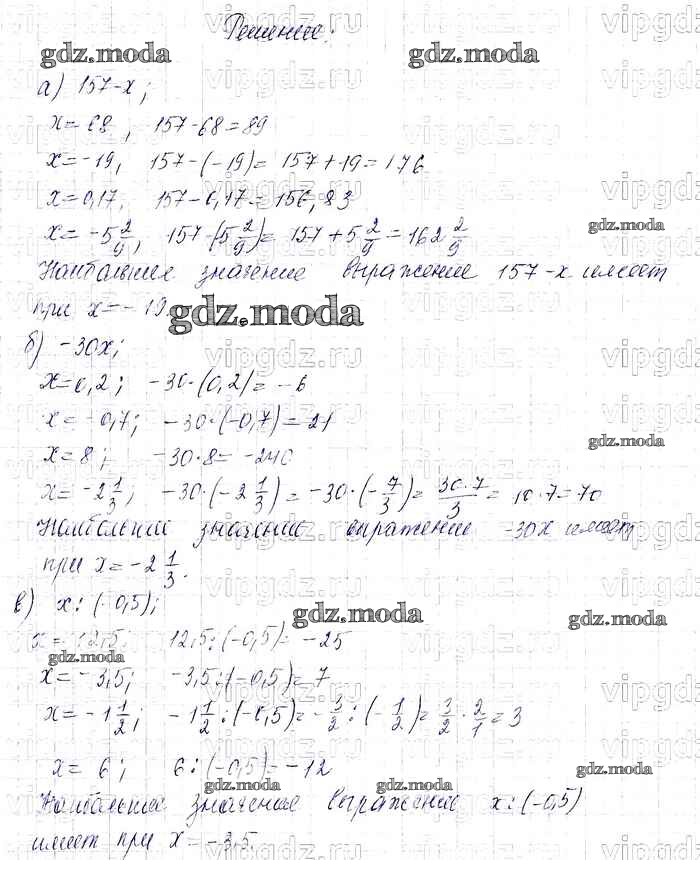 Решение:
а) 157-x;
x=68, 157-68=89
x=-19, 157-(-19)=157+19=176
x=0,17, 157-0,17=156,83
x=-5 2/9, 157-(5 2/9)=157+5 2/9=162 2/9
Наибольшее значение выражение 157-x имеет
при x=-19.
б) -30x;
x=0,2; -30·(0,2)=-6
x=-0,7; -30·(-0,7)=21
x=8; -30·8=-240
x=-2 1/3; -30·(-2 1/3)=-30·(-7/3)=30·7/3=10·7=70
Наибольшее значение выражение -30x имеет
при x=-2 1/3.
в) x:(-0,5);
x=12,5; 12,5:(-0,5)=-25
x=-3,5; -3,5:(-0,5)=7
x=-1 1/2; -1 1/2:(-0,5)=-3/2:(-1/2)=3/2·2/1=3
x=6; 6:(-0,5)=-12
Наибольшее значение выражение x:(-0,5)
имеет при x=-3,5.
gdz.moda
vipgdz.ru